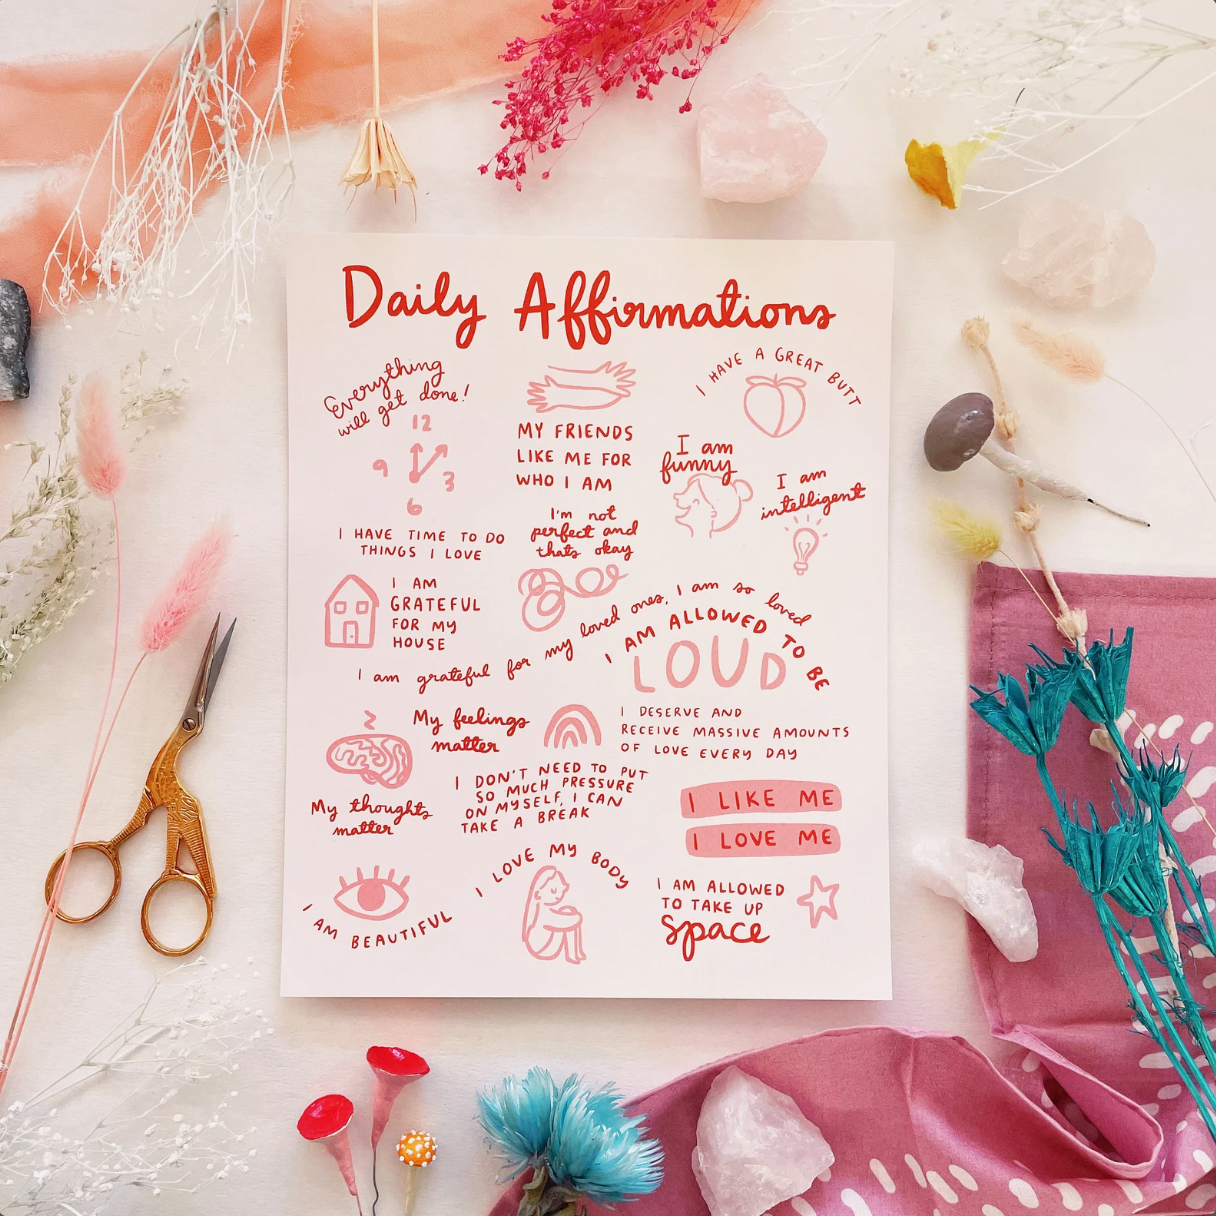 Daily Affirmations
Everything
will get done!
12
9
3
6
I HAVE TIME TO DO
THINGS I LOVE
MY FRIENDS
LIKE ME FOR
WHO I AM
I HAVE A GREAT BUTT
I am
funny
I am
intelligent
I'm not
perfect and
thats okay
I AM
GRATEFUL
FOR MY
HOUSE
I am grateful for my loved ones, I am so loved
I AM ALLOWED TO BE
LOUD
My feelings
matter
My thoughts
matter
I DESERVE AND
RECEIVE MASSIVE AMOUNTS
OF LOVE EVERY DAY
I DON'T NEED TO PUT
SO MUCH PRESSURE
ON MYSELF, I CAN
TAKE A BREAK
I LIKE ME
I LOVE ME
I AM BEAUTIFUL
I LOVE MY BODY
I AM ALLOWED
TO TAKE UP
space